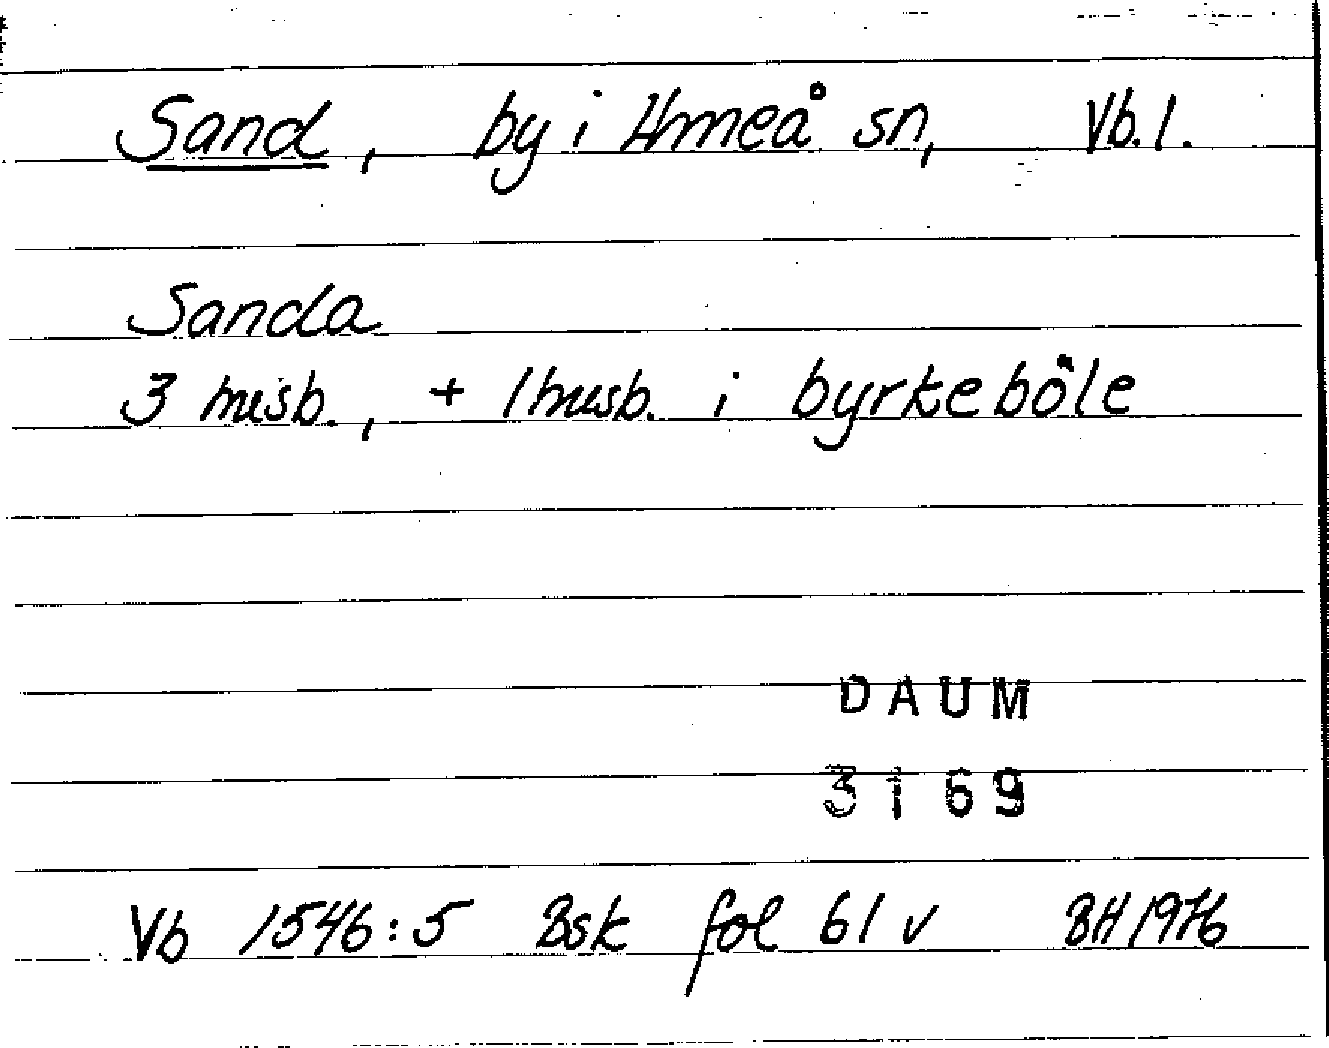 Sand, by i Umeå sn, Vb. l.
Sanda
3 husb., + 1 husb. i byrkeböle
DAUM
3169
Vb 1546:5 Bsk fol 61 v BH 1976